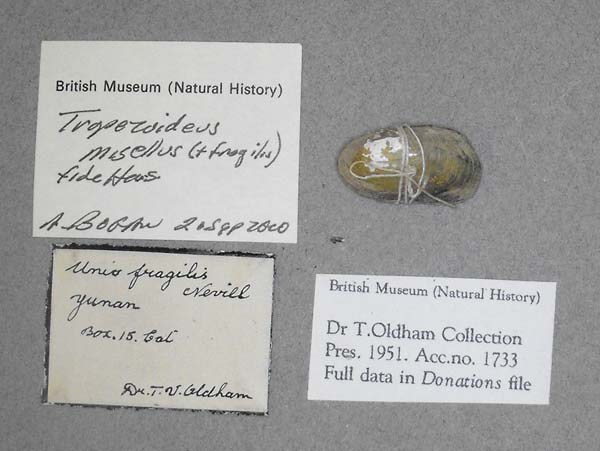 British Museum (Natural History)
Trapezoideus
misellus (+ fragilis)
fide Haas
A. BOGAN 20 Sep 2000
Unio fragilis
Nevill
Yunan
Box. 15. Cat
Dr. T. V. Oldham
British Museum (Natural History)
Dr T.Oldham Collection
Pres. 1951. Acc.no. 1733
Full data in Donations file